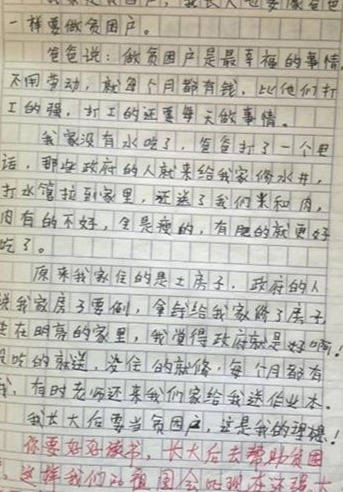 我长大也要像爸爸
一样要做贫困户。
爸爸说：做贫困户是最幸福的事情
不用劳动，就每个月都有钱，比他们打
工的强，打工的还要每天做事情。
我家没有水吃了，爸爸打了一个电
话，那些政府的人就来给我家修水井，
打水管拉到家里，还送了我们米和肉，
肉有的不好，全是瘦的，有肥的就更好
吃了。
原来我家住的是土房子，政府的人
说我家房子要倒，拿钱给我家修了房子
在明亮的家里，我觉得政府就是好啊！
没吃的就送，没住的就修，每个月都有
钱，有时老师还来我们家给我送作业本。
我长大后要当贫困户，这是我的理想！
你要好好读书，长大后去帮助贫困
，这样我们的祖国会比现在还强大